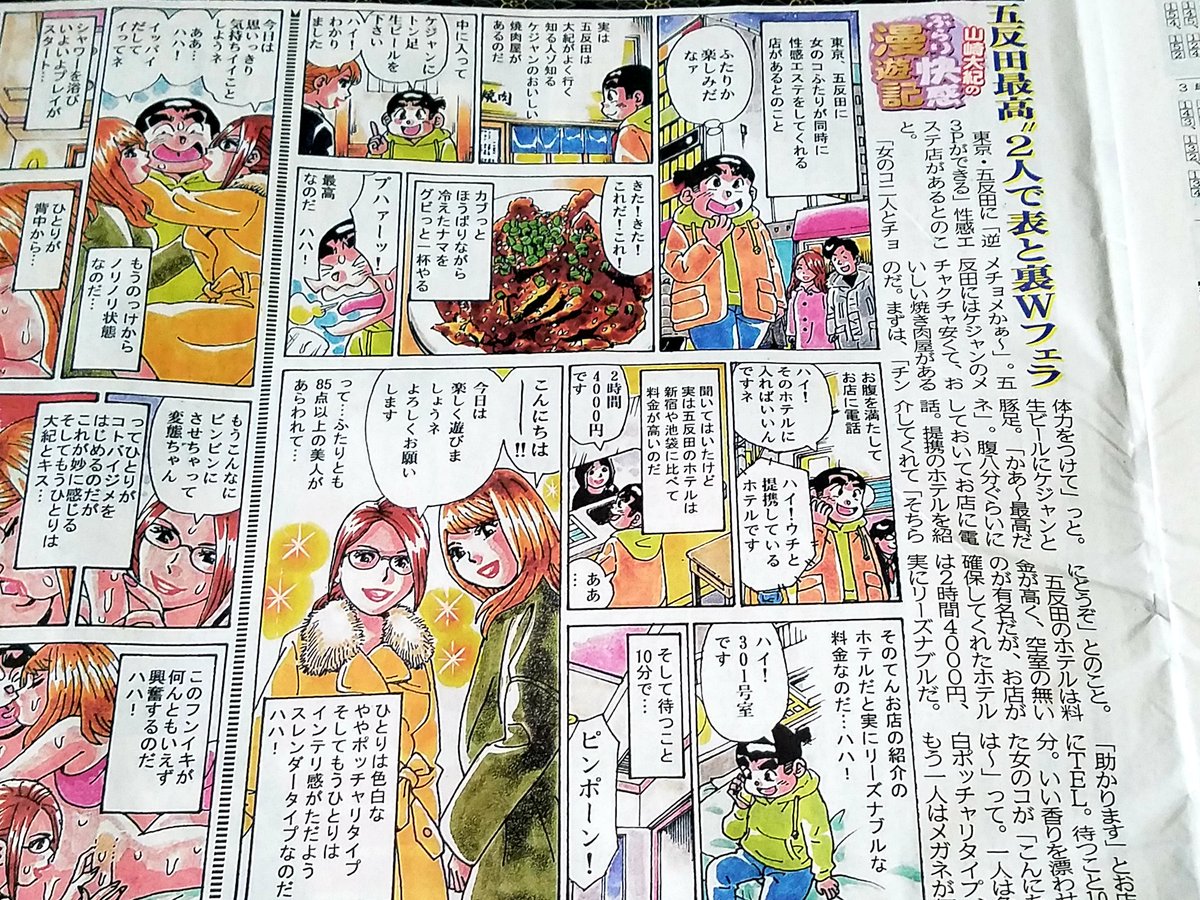 五反田最高"2人で表と裏Wフェラ
山崎大紀の
ぶらり快感
漫遊記
東京・五反田に「逆
3Pができる」性感エ
ステ店があるとのこ
と。
「女のコ二人とチョ
メチョメかぁ〜」。五
反田にはケジャンのメ
チャクチャ安くて、お
いしい焼き肉屋がある
のだ。まずは、「チン
体力をつけて」っと。
生ビールにケジャンと
豚足。「かあ〜最高だ
ネ」。腹八分ぐらいに
しておいてお店に電
話。提携のホテルを紹
介してくれて「そちら
にどうぞ」とのこと。
五反田のホテルは料
金が高く、空室の無い
のが有名だが、お店が
確保してくれたホテル
は2時間4000円、
実にリーズナブルだ。
「助かります」とお店
にTEL。待つこと10
分。いい香りを漂わせ
た女のコが「こんにち
は〜」って。一人は色
白ポッチャリタイプ、
もう一人はメガネが
東京、五反田に
女のコふたりが同時に
性感エステをしてくれる
店があるとのこと
ふたりか
楽しみだ
なァ
実は
五反田は
大紀がよく行く
知る人ゾ知る
ケジャンのおいしい
焼肉屋が
ある
焼肉
中に入って
ケジャンに
トン足
生ビールを
下さい
ハイ!
わかり
ました
きた!きた!
これだ!これ!
カブっと
ほうばりながら
冷えたナマを
グビっと一杯やる
プハァーッ!
最高
なのだ
ハハ!
お腹を満たして
お店に電話
ハイ!
そのホテルに
入ればいいん
ですネ
ハイ!ウチと
提携している
ホテルです
聞いてはいたけど
実は五反田のホテルは
新宿や池袋に比べて
料金が高いのだ
2時間
4000円
です
あぁ
…
そのてんお店の紹介の
ホテルだと実にリーズナブルな
料金なのだ…ハハ!
ハイ!
301号室
です
そして待つこと
10分で…
ピンポーン!
こんにちは
ー!!
今日は
楽しく遊びま
しょうネ
よろしくお願い
します
って…ふたりとも
85点以上の美人が
あらわれて…
ひとりは色白な
ややポッチャリタイプ
そしてもうひとりは
インテリ感がただよう
スレンダータイプなのだ
ハハ!
今日は
思いっきり
気持ちイイこと
しようネ
ああ…
ハハ!
イッパイ
だして
イッてネ
もうのっけから
ノリノリ状態
なのだ…
シャワーを浴び
いよいよプレイが
スタート…
ひとりが
背中から…
もうこんなに
ビンビンに
させちゃって
変態ちゃん
ってひとりが
コトバイジメを
はじめるのだが
これが妙に感じる
そしてもうひとりは
大紀とキス…
このフンイキが
何んともいえず
興奮するのだ
ハハ!